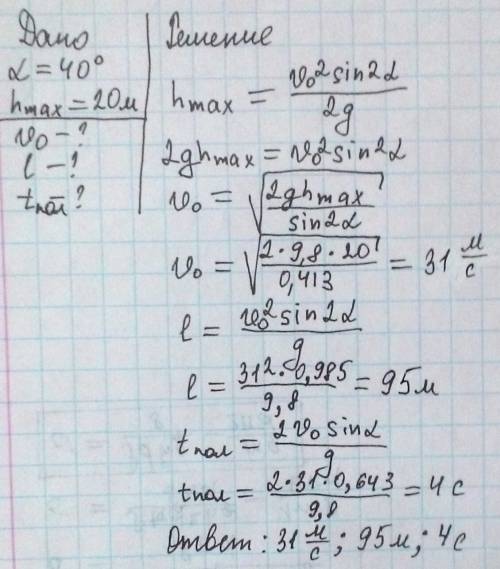 Дано
α = 40°
hmax = 20м
v₀ - ?
l - ?
tпол - ?
Решение
hmax = v₀² sin2α / 2g
2ghmax = v₀² sin2α
v₀ = √(2ghmax / sin2α)
v₀ = √(2·9,8·20 / 0,413) = 31 м/с
l = v₀² sin2α / g
l = 31²·0,985 / 9,8 = 95м
tпол = 2v₀ sinα / g
tпол = 2·31·0,643 / 9,8 = 4с
Ответ: 31 м/с; 95м; 4с